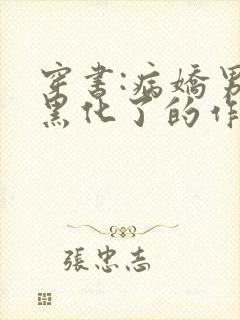 穿書:病嬌男
黑化了的作
張忠志